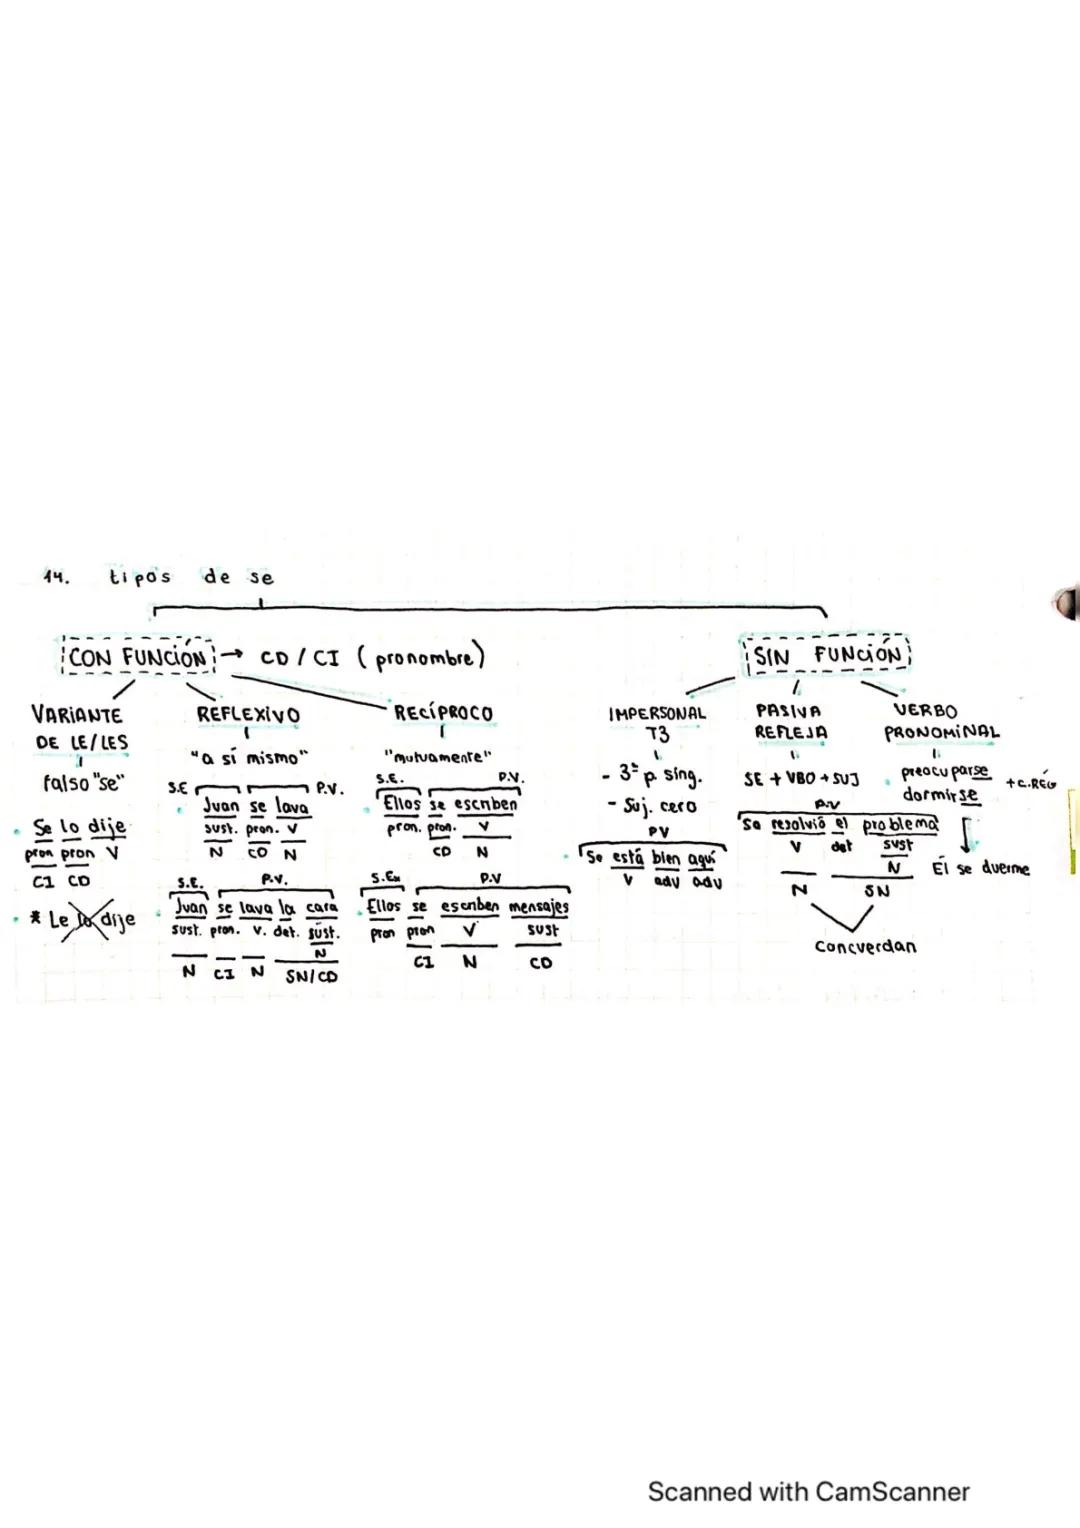 14. tipos de se
CON FUNCIÓN → CD / CI (pronombre)
VARIANTE
DE LE/LES
falso "se"
Se lo dije
pron pron V
CI CD
* Le lo dije
REFLEXIVO
"a sí mismo"
S.E P.V.
Juan se lava
sust. pron. V
N CD N
S.E. P.V.
Juan se lava la cara
sust. pron. V. det. sust.
N
N CI N SN/CD
RECÍPROCO
"mutuamente"
S.E. P.V.
Ellos se escriben
pron. pron. V
CD N
S.Ex P.V
Ellos se escriben mensajes
pron pron V sust
CI N CD
SIN FUNCIÓN
IMPERSONAL
T3
- 3ª p. sing.
- Suj. cero
PV
Se está bien aquí
V adv adv
PASIVA
REFLEJA
SE + VBO + SUJ
P.V
Se resolvió el problema
V det sust
N
N SN
Concuerdan
VERBO
PRONOMINAL
preocuparse
dormirse
+C.RÉG
Él se duerme
Scanned with CamScanner